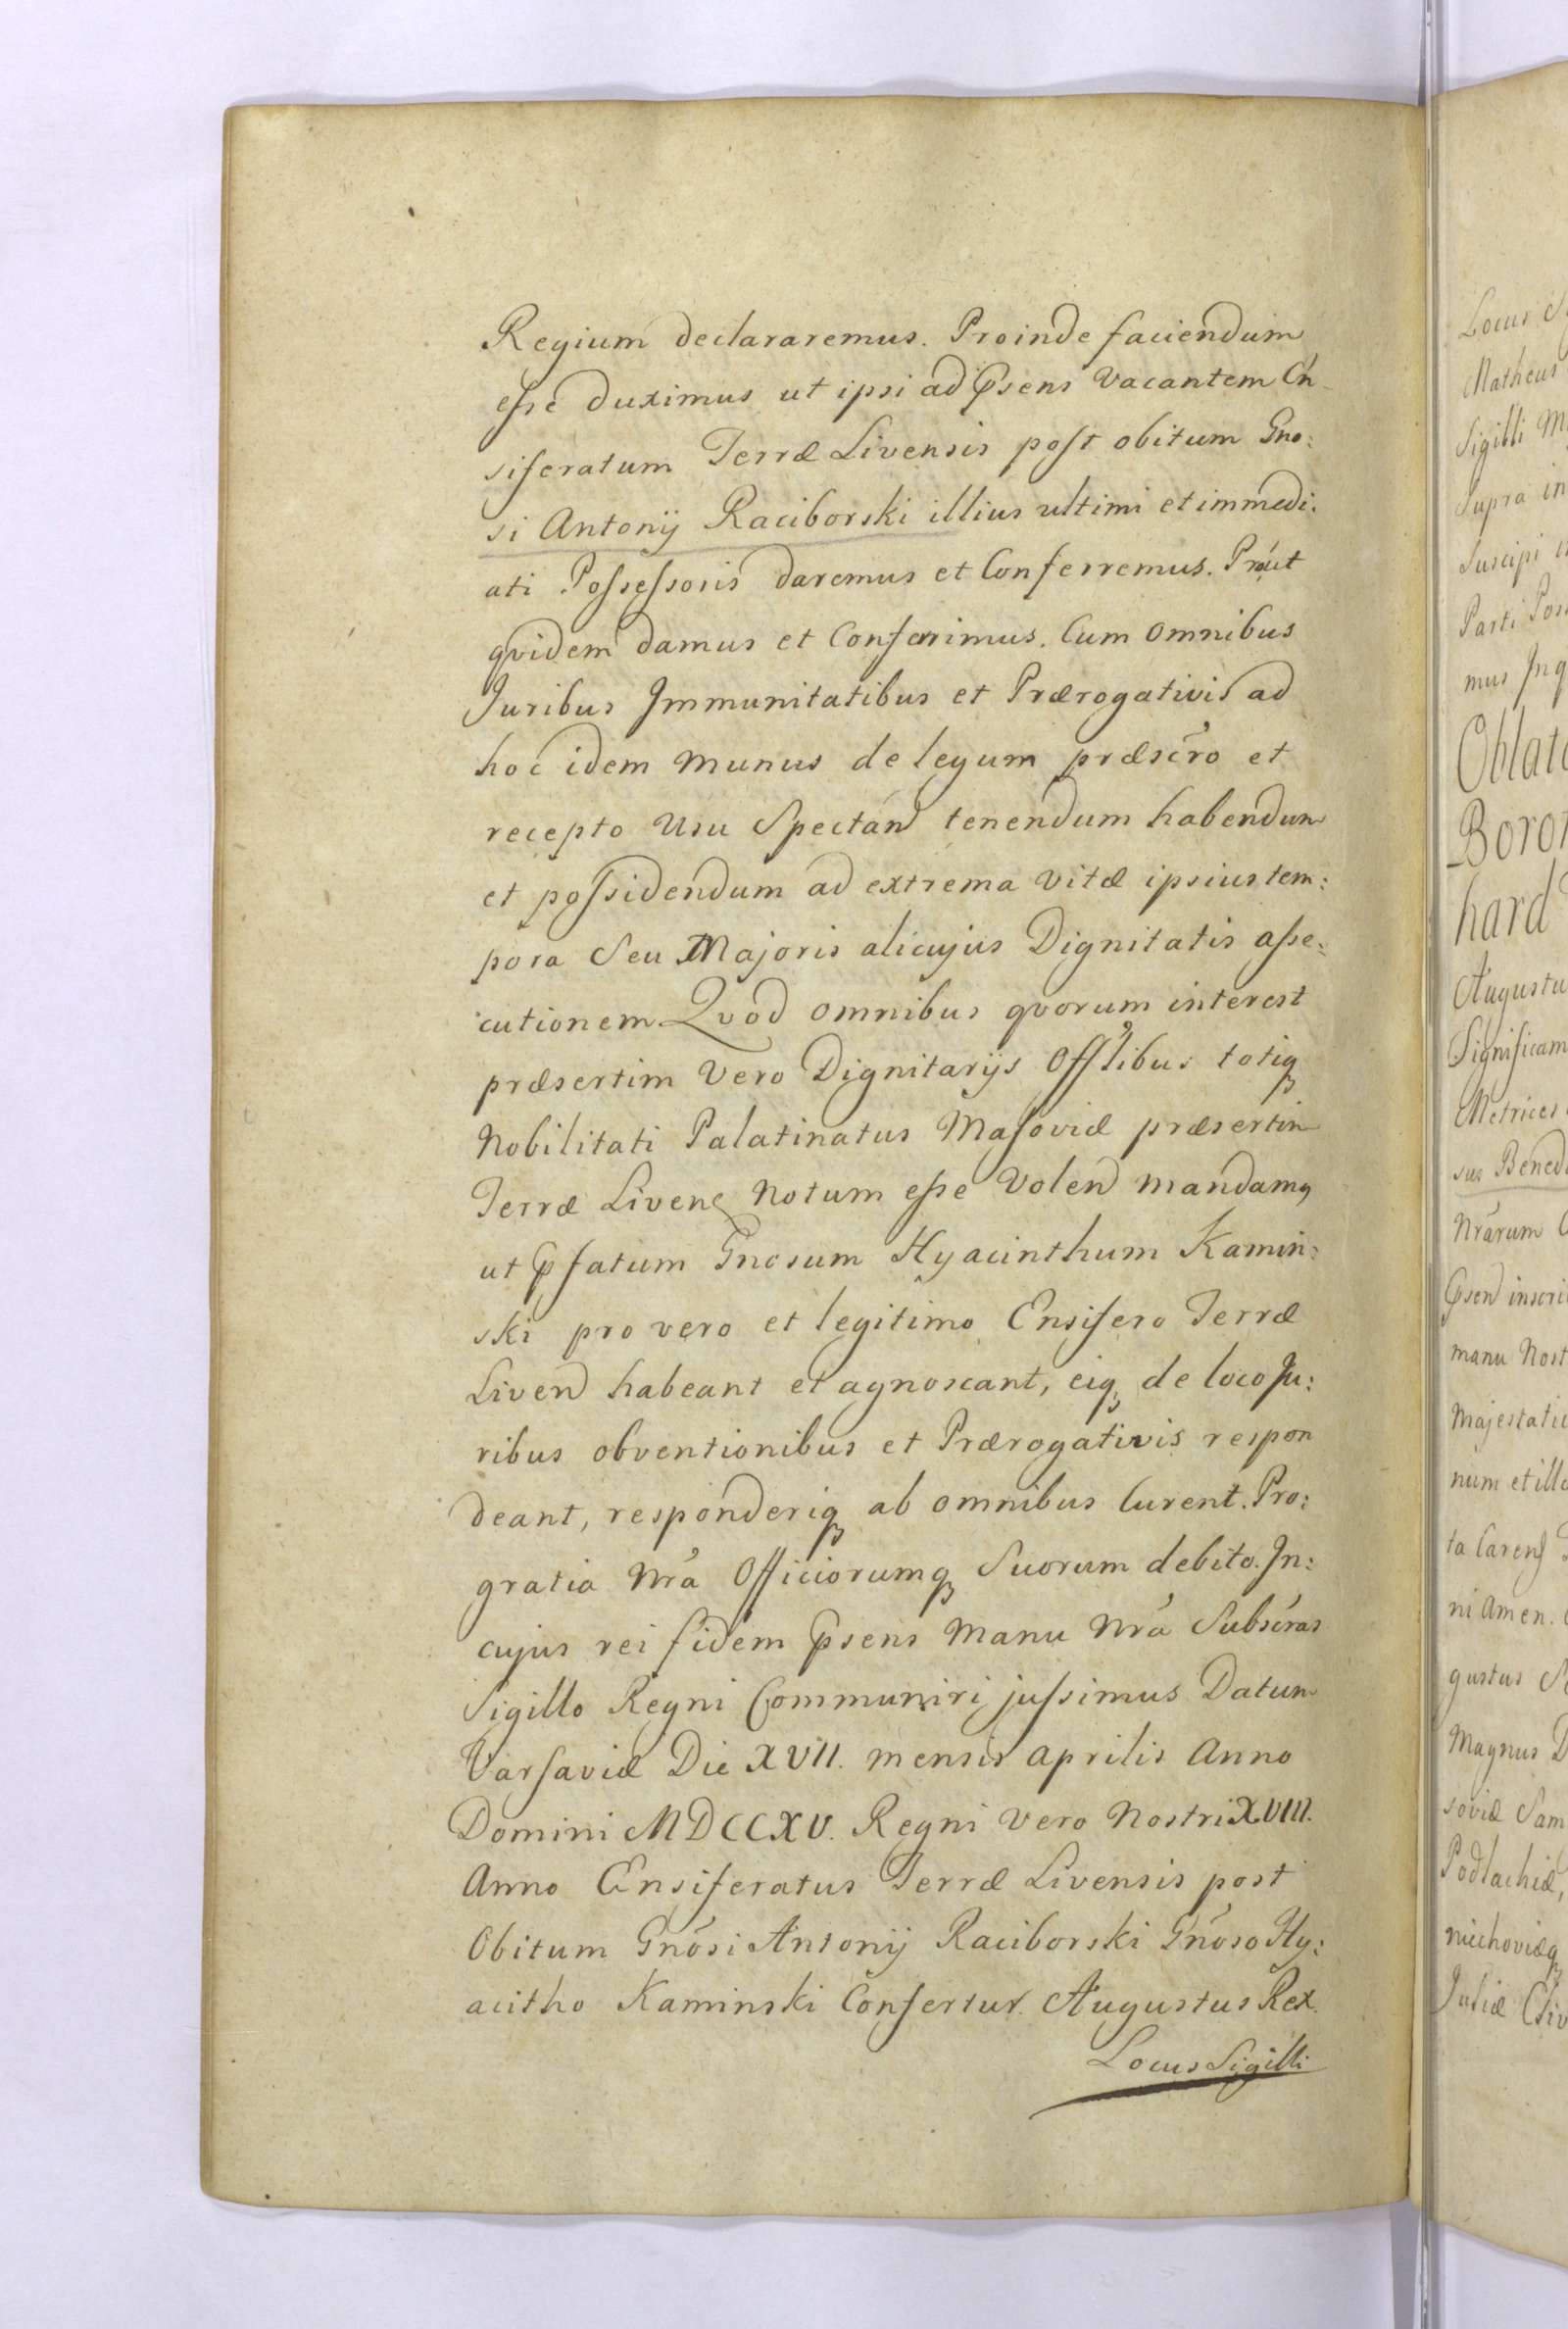 Regium declararemus. Proinde faciendum
esse duximus ut ipsi ad Psens vacantem En
siferatum Terræ Livensis post obitum Gno:
si Antonij Raciborski illius ultimi et immedi:
ati Possessoris daremus et Conferremus. Prout
qvidem damus et Conferimus. Cum omnibus
Juribus Immunitatibus et Prærogativis ad
hoc idem munus de legum præscro et
recepto usu Spectan tenendum habendum
et possidendum ad extrema vitæ ipsius tem:
pora Seu Majoris alicujus Dignitatis asse:
cutionem Qvod omnibus qvorum interest
præsertim vero Dignitarijs Offlibus totiq
Nobilitati Palatinatus Masoviæ præsertim
Terræ Livens Notum esse volen mandamq
ut Pfatum Gnosum Hyacinthum Kamin:
ski pro vero et legitimo Ensifero Terræ
Liven habeant et agnoscant, eiq de loco Ju:
ribus obventionibus et Prærogativis respon
deant, responderiq ab omnibus Curent. Pro:
gratia Nra Officiorumq Suorum debito. In:
cujus rei fidem Psens Manu Nra Subscras
Sigillo Regni Communiri jussimus Datum
Varsaviæ Die XVII. mensis Aprilis Anno
Domini MDCCXV. Regni vero Nostri XVIII.
Anno Ensiferatus Terræ Livensis post
Obitum Gnosi Antonij Raciborski Gnoso Hy:
acitho Kaminski Confertur. Augustus Rex.
Locus Sigilli
Locus
Matheus
Sigilli
Supra in
Suscipi
Parti
mus Inq
Oblata
Boro
hard
Augustu
Significam
Metrices
sus Bened
Nrarum
Psen inscri
manu Nost
Majestatic
num et illo
ta Carens
ni Amen.
gustus
Magnus D
soviæ Sam
Podlachiæ,
niechoviæq
Juliæ Cliv